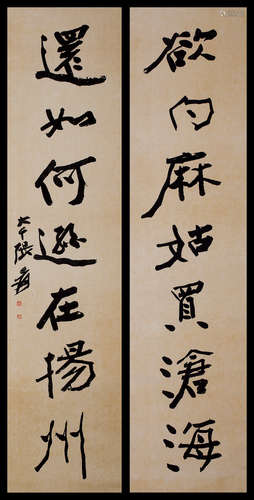 欲向麻姑買滄海
還如何遜在揚州
大千張爰